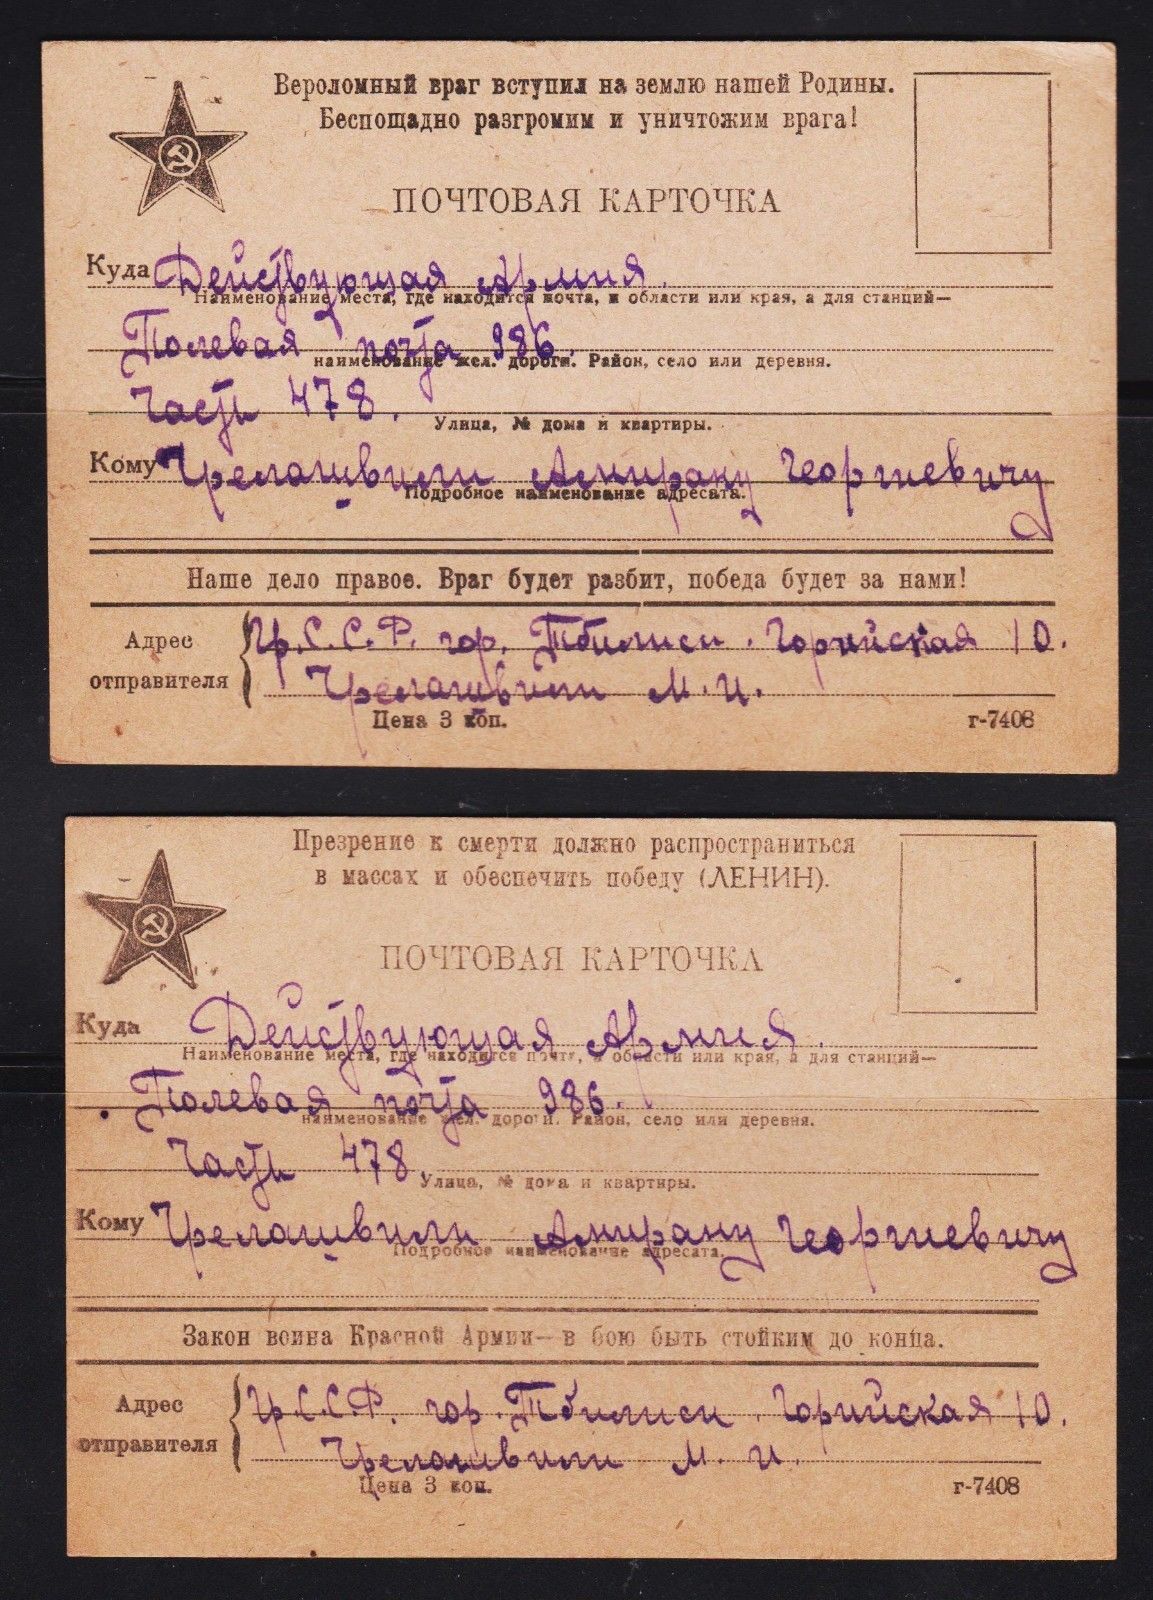 Вероломный враг вступил на землю нашей Родины.
Беспощадно разгромим и уничтожим врага!
ПОЧТОВАЯ КАРТОЧКА
Куда Действующая Армия.
Наименование места, где находится почта, и области или края, а для станций—
Полевая почта 986.
наименование жел. дороги. Район, село или деревня.
Части 478.
Улица, № дома и квартиры.
Кому Грелашвили Амирану Георгиевичу
Подробное наименование адресата.
Наше дело правое. Враг будет разбит, победа будет за нами!
Адрес отправителя
Гр.С.С.Р. гор. Тбилиси. Горийская 10.
Грелашвили М. И.
Цена 3 коп.
г-7408
Презрение к смерти должно распространиться
в массах и обеспечить победу (ЛЕНИН).
ПОЧТОВАЯ КАРТОЧКА
Куда Действующая Армия.
Наименование места, где находится почта, и области или края, а для станций—
Полевая почта 986.
наименование жел. дороги. Район, село или деревня.
Части 478.
Улица, № дома и квартиры.
Кому Грелашвили Амирану Георгиевичу
Подробное наименование адресата.
Закон воина Красной Армии—в бою быть стойким до конца.
Адрес отправителя
Гр.С.С.Р. гор. Тбилиси. Горийская 10.
Грелашвили М. И.
Цена 3 коп.
г-7408